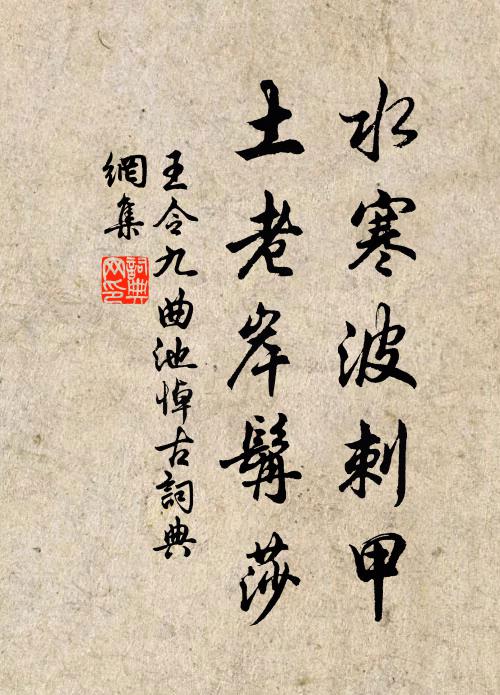 水寒波刺甲
土老岸髯莎
王令九曲池悼古詞典
網集
詞典
网印